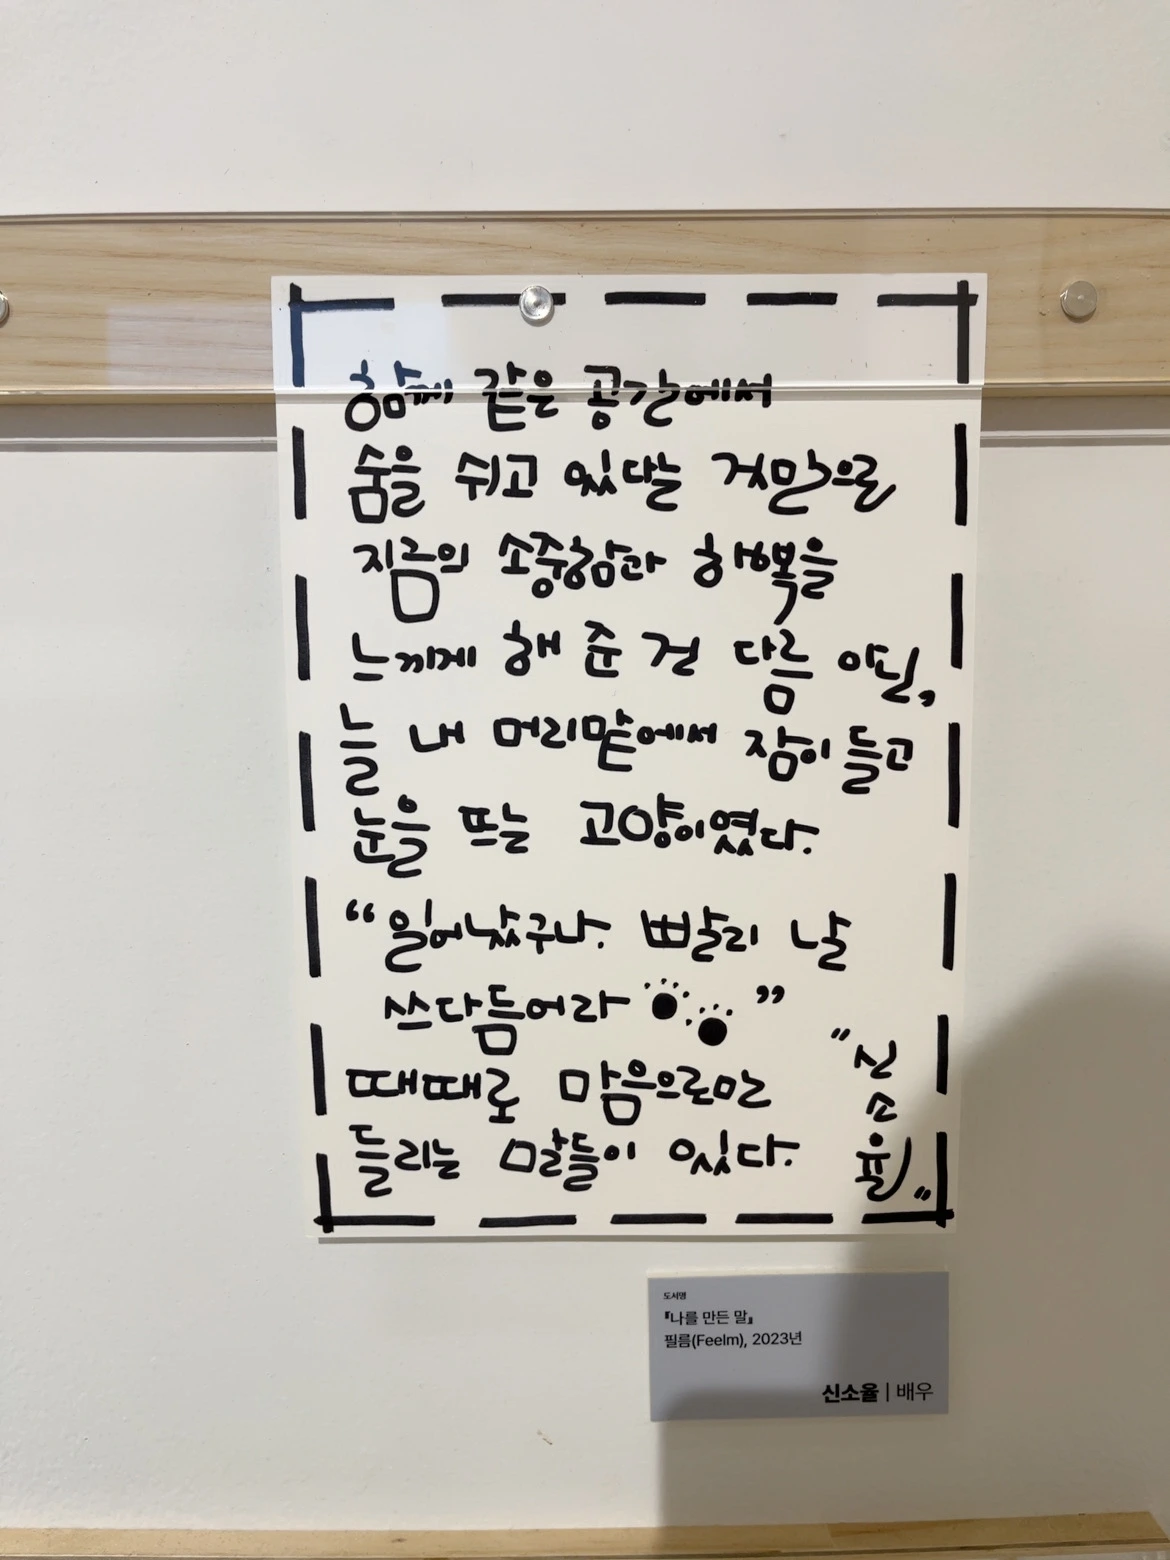 함께 같은 공간에서
숨을 쉬고 있다는 것만으로
지금의 소중함과 행복을
느끼게 해 준 건 다름 아닌,
늘 내 머리맡에서 잠이 들고
눈을 뜨는 고양이였다.
“일어났구나. 빨리 날
쓰다듬어라 ”
때때로 마음으로만
들리는 말들이 있다.
"신
소
율"
도서명
『나를 만든 말』
필름(Feelm), 2023년
신소율 | 배우